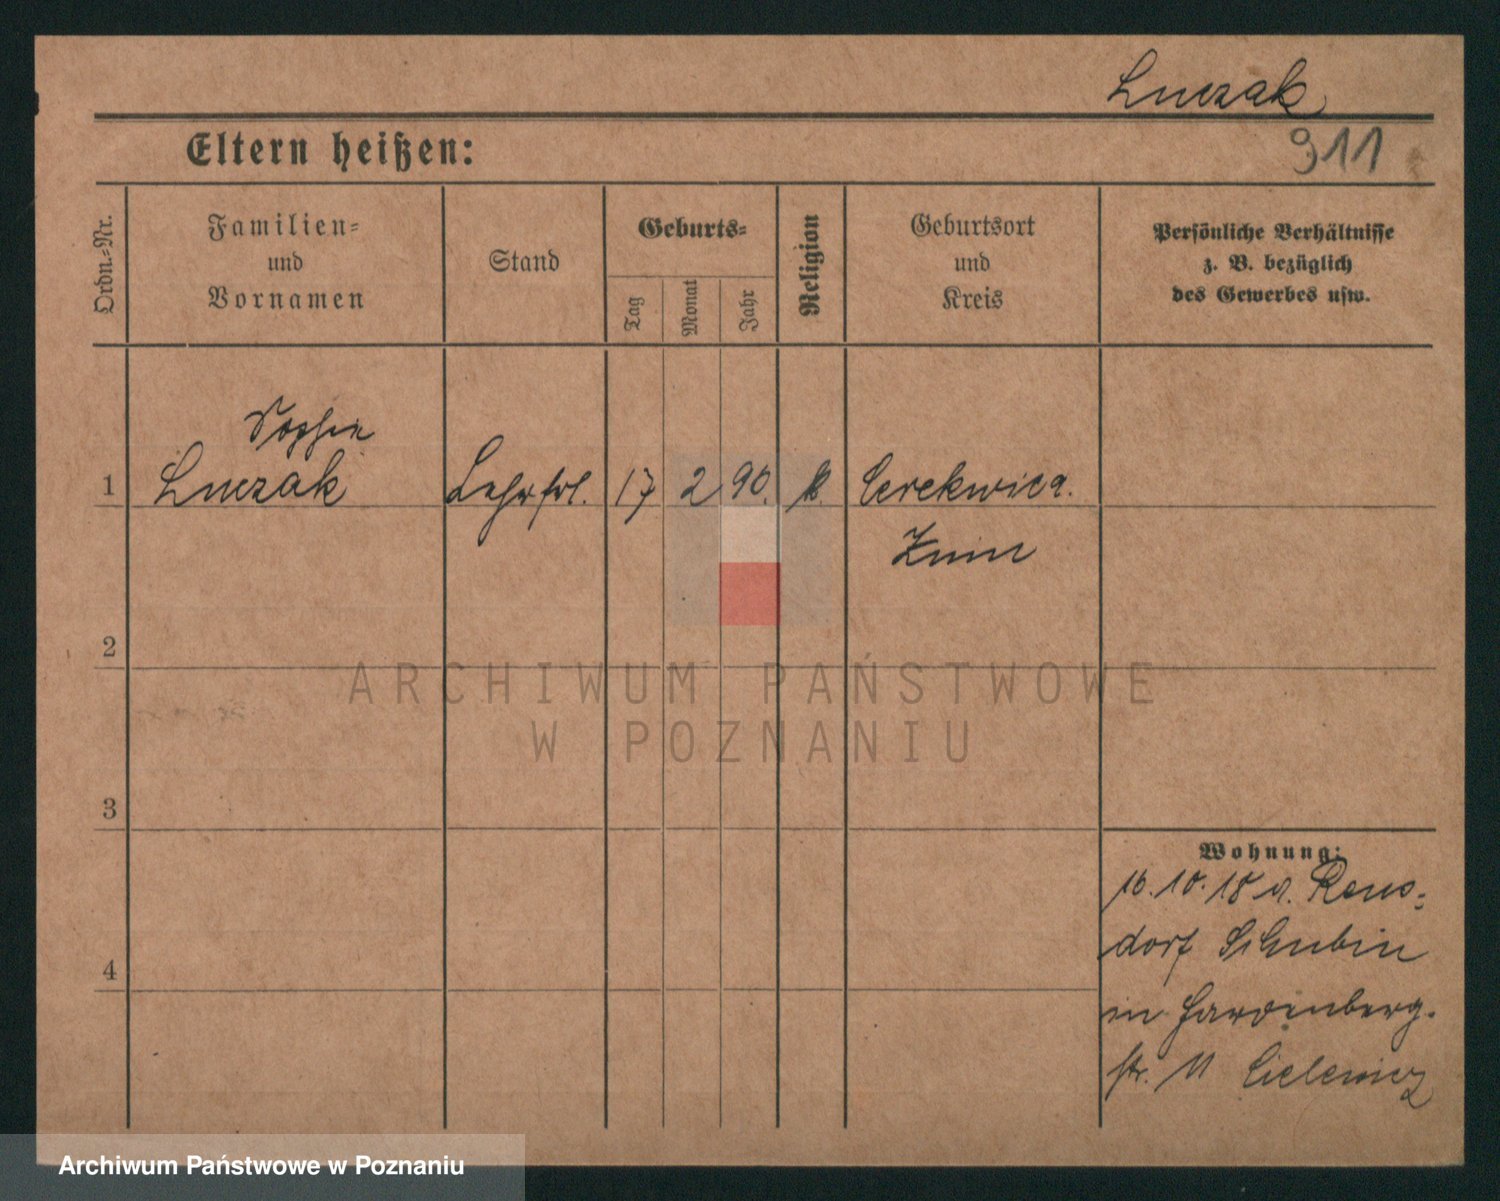 Luczak
911
Eltern heißen:
Ordn.-Nr.
Familien- und Vornamen
Stand
Geburts-
Tag
Monat
Jahr
Religion
Geburtsort und Kreis
Persönliche Verhältnisse
z. B. bezüglich
des Gewerbes usw.
Sophie
1 Luczak Lehrfrl. 17 2 90. k. Cerekwica.
Znin
2
ARCHIWUM PAŃSTWOWE
W POZNANIU
3
Wohnung:
16.10.18 a. Reus-
dorf Schubin
4
in Hardenberg-
str. 11 Cielewicz
Archiwum Państwowe w Poznaniu